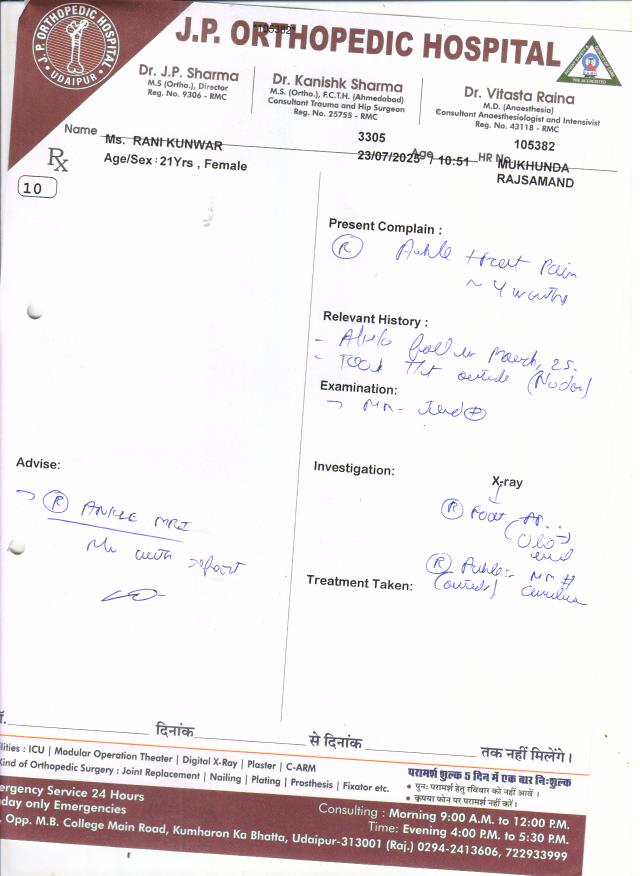 J.P. ORTHOPEDIC HOSPITAL
UDAIPUR
J.P. ORTHOPEDIC HOSPITAL
Dr. J.P. Sharma
M.S (Ortho.), Director
Reg. No. 9306 - RMC
Dr. Kanishk Sharma
M.S. (Ortho.), F.C.T.H (Ahmedabad)
Consultant Trauma and Hip Surgeon
Reg. No. 25755 - RMC
Dr. Vitasta Raina
M.D. (Anaesthesia)
Consultant Anaesthesiologist and Intensivist
Reg. No. 43118 - RMC
Name Ms. RANI KUNWAR 3305 105382
Rx Age/Sex : 21Yrs , Female 23/07/2025 / 10:51 Age HR No MUKHUNDA
RAJSAMAND
10
Present Complain :
R Ankle Pain
~ 4
Relevant History :
- fall in March, 25.
- outside
Examination:
Advise:
→ R ANKLE MRI
with report
Investigation:
X-ray
R Foot AP
R Ankle
Treatment Taken: (outside)
दिनांक से दिनांक तक नहीं मिलेंगे।
ilities : ICU | Modular Operation Theater | Digital X-Ray | Plaster | C-ARM
Kind of Orthopedic Surgery : Joint Replacement | Nailing | Plating | Prosthesis | Fixator etc.
परामर्श शुल्क 5 दिन में एक बार निःशुल्क
• पुनः परामर्श हेतु रविवार को नहीं आवें ।
• कृपया फोन पर परामर्श नहीं करें।
ergency Service 24 Hours
day only Emergencies
Consulting : Morning 9:00 A.M. to 12:00 P.M.
Time: Evening 4:00 P.M. to 5:30 P.M.
, Opp. M.B. College Main Road, Kumharon Ka Bhatta, Udaipur-313001 (Raj.) 0294-2413606, 722933999